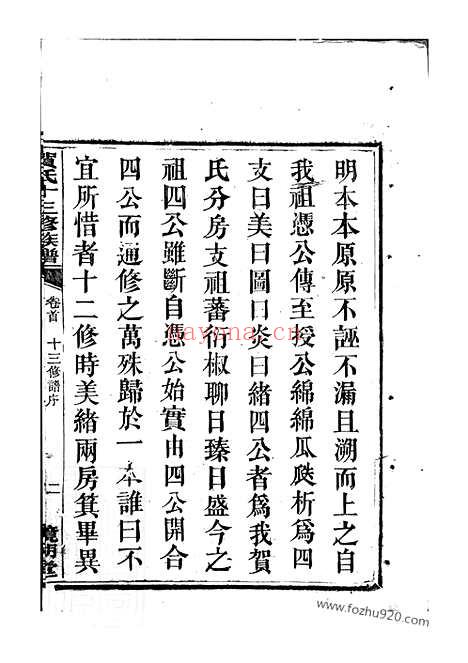 明本本原原不誣不漏且溯而上之自
我祖憑公傳至授公綿綿瓜瓞析為四
支曰美曰圖曰炎曰緒四公者爲我賀
氏分房支祖蕃衍椒聊日臻日盛今之
祖四公雖斷自憑公始實由四公開合
四公而通修之萬殊歸於一本誰曰不
宜所惜者十二修時美緒兩房箕畢異
賀氏十三修族譜
卷首 十三修譜序
二
www.fozhu920.com